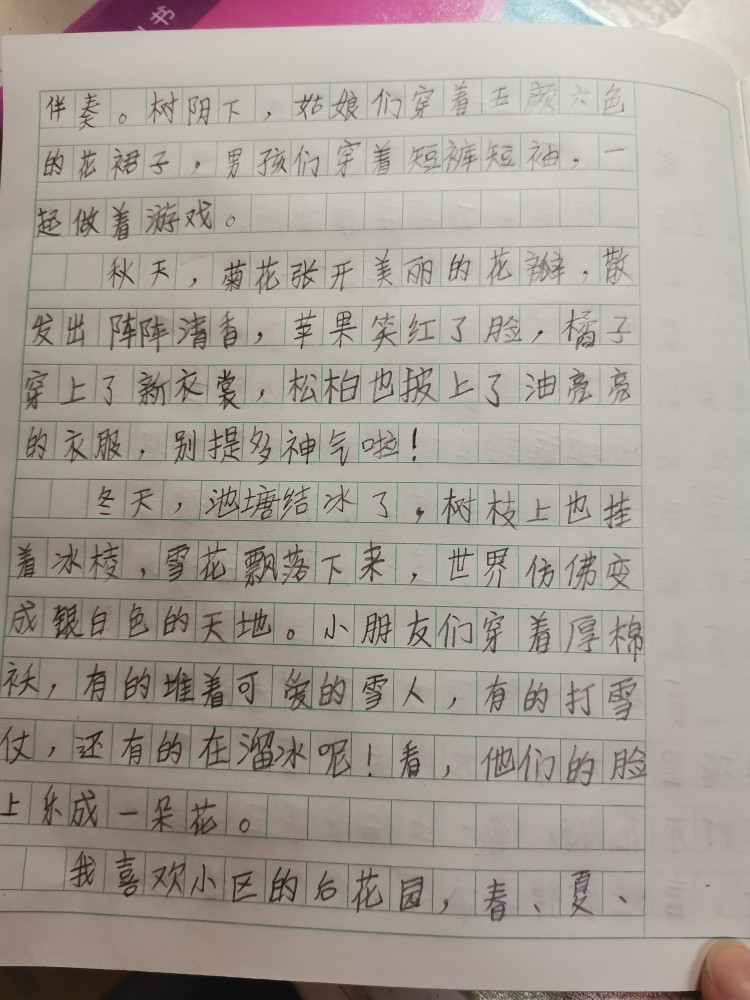 书
伴奏。树阴下，姑娘们穿着五颜六色
的花裙子，男孩们穿着短裤短袖，一
起做着游戏。
秋天，菊花张开美丽的花瓣，散
发出阵阵清香，苹果笑红了脸，橘子
穿上了新衣裳，松柏也披上了油亮亮
的衣服，别提多神气啦！
冬天，池塘结冰了，树枝上也挂
着冰棱，雪花飘落下来，世界仿佛变
成银白色的天地。小朋友们穿着厚棉
袄，有的堆着可爱的雪人，有的打雪
仗，还有的在溜冰呢！看，他们的脸
上乐成一朵花。
我喜欢小区的后花园，春、夏、